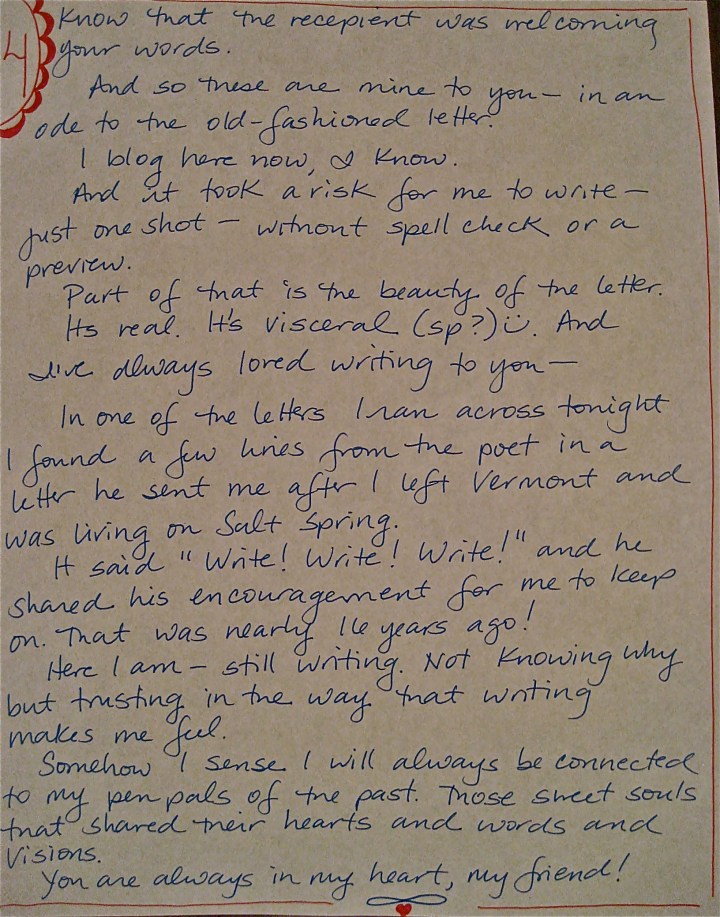 4
Know that the recepient was welcoming
your words.
And so these are mine to you — in an
ode to the old-fashioned letter.
I blog here now, I know.
And it took a risk for me to write —
just one shot — without spell check or a
preview.
Part of that is the beauty of the letter.
Its real. It's visceral (sp?) ü. And
I've always loved writing to you —
In one of the letters I ran across tonight
I found a few lines from the poet in a
letter he sent me after I left Vermont and
was living on Salt Spring.
It said "Write! Write! Write!" and he
shared his encouragement for me to keep
on. That was nearly 16 years ago!
Here I am — still writing. Not knowing why
but trusting in the way that writing
makes me feel.
Somehow I sense I will always be connected
to my pen pals of the past. Those sweet souls
that shared their hearts and words and
visions.
You are always in my heart, my friend!